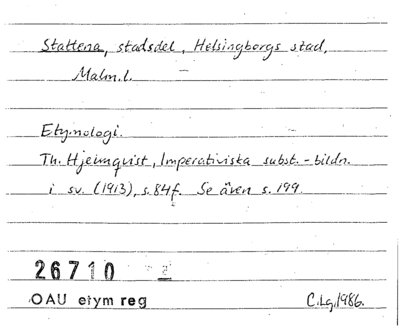 Stattena, stadsdel, Helsingborgs stad,
Malm.l. –
Etymologi.
Th. Hjelmqvist, Imperativiska subst.-bildn.
i sv. (1913), s. 84f. Se även s. 199.
26710
OAU etym reg C.Lg.1986.